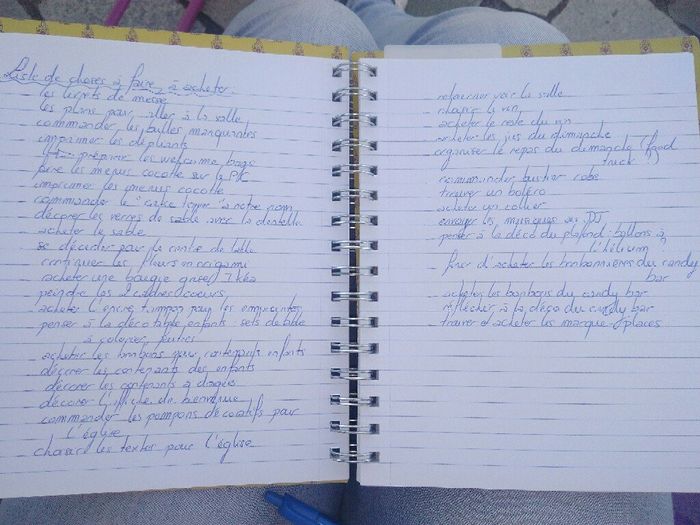 Liste de choses à faire, à acheter:
_ les livrets de messe
_ les plans pour aller à la salle
_ commander les bulles manquantes
_ imprimer les dépliants
_ préparer les welcome bags
_ faire les menus cocotte sur le PC
_ imprimer les menus cocotte
_ commander le "cake toper" à notre nom
_ décorer les verres de sable avec la dentelle
_ acheter le sable
_ se décider pour le centre de table
_ continuer les fleurs en origami
_ racheter une bougie grise Ikéa
_ peindre les 2 cadres coeurs
_ acheter l'encre, tampon pour les empreintes
_ penser à la déco table enfants: sets de table
à colorier, feutres
_ acheter les bonbons pour contenants enfants
_ décorer les contenants des enfants
_ décorer les contenants à dragées
_ décorer l'affiche de bienvenue
_ commander les pompons décoratifs pour
l'église
_ choisir les textes pour l'église
_ retourner voir la salle
_ choisir le vin
_ acheter le reste du vin
_ acheter les jus du dimanche
_ organiser le repas du dimanche (food
truck?)
_ recommander bustier robe
_ trouver un boléro
_ acheter un collier
_ envoyer les musiques au DJ
_ penser à la déco du plafond: ballons à
l'hélium?
_ finir d'acheter les bonbonnières du candy
bar
_ acheter les bonbons du candy bar
_ réfléchir à la déco du candy bar
_ trouver et acheter les marque-places